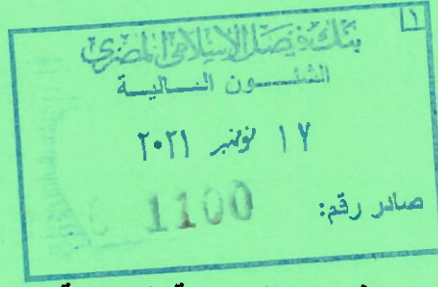 ١
بنك فيصل الإسلامي المصري
الشئون المالية
١٧ نوفمبر ٢٠٢١
صادر رقم: 1100